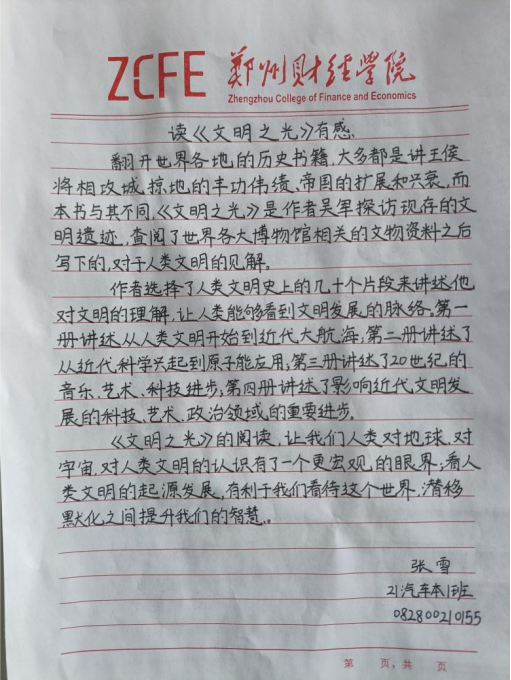 ZCFE 郑州财经学院
Zhengzhou College of Finance and Economics
读《文明之光》有感
翻开世界各地的历史书籍,大多都是讲王侯
将相攻城、掠地的丰功伟绩、帝国的扩展和兴衰,而
本书与其不同,《文明之光》是作者吴军探访现存的文
明遗迹,查阅了世界各大博物馆相关的文物资料之后
写下的,对于人类文明的见解。
作者选择了人类文明史上的几十个片段来讲述他
对文明的理解,让人类能够看到文明发展的脉络。第一
册讲述从人类文明开始到近代大航海;第二册讲述了
从近代科学兴起到原子能应用;第三册讲述了20世纪的
音乐、艺术、科技进步;第四册讲述了影响近代文明发
展的科技、艺术、政治领域的重要进步。
《文明之光》的阅读,让我们人类对地球、对
宇宙、对人类文明的认识有了一个更宏观的眼界;看人
类文明的起源发展,有利于我们看待这个世界,潜移
默化之间提升我们的智慧。
张雪
21汽车本1班
082800210155
第 页,共 页